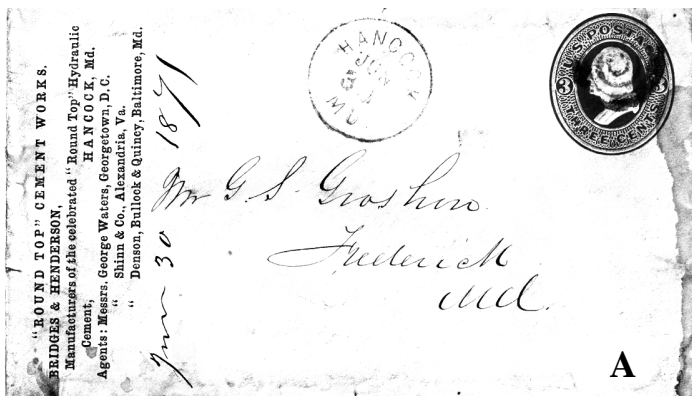 "ROUND TOP" CEMENT WORKS.
BRIDGES & HENDERSON,
Manufacturers of the celebrated "Round Top" Hydraulic
Cement, HANCOCK, Md.
Agents: Messrs. George Waters, Georgetown, D.C.
" Shinn & Co., Alexandria, Va.
" Denson, Bullock & Quincy, Baltimore, Md.
June 30 1871
HANCOCK
JUN
MD
U.S. POSTAGE
3 3
THREE CENTS
Mr G. S. Groshon
Frederick
Md.
A